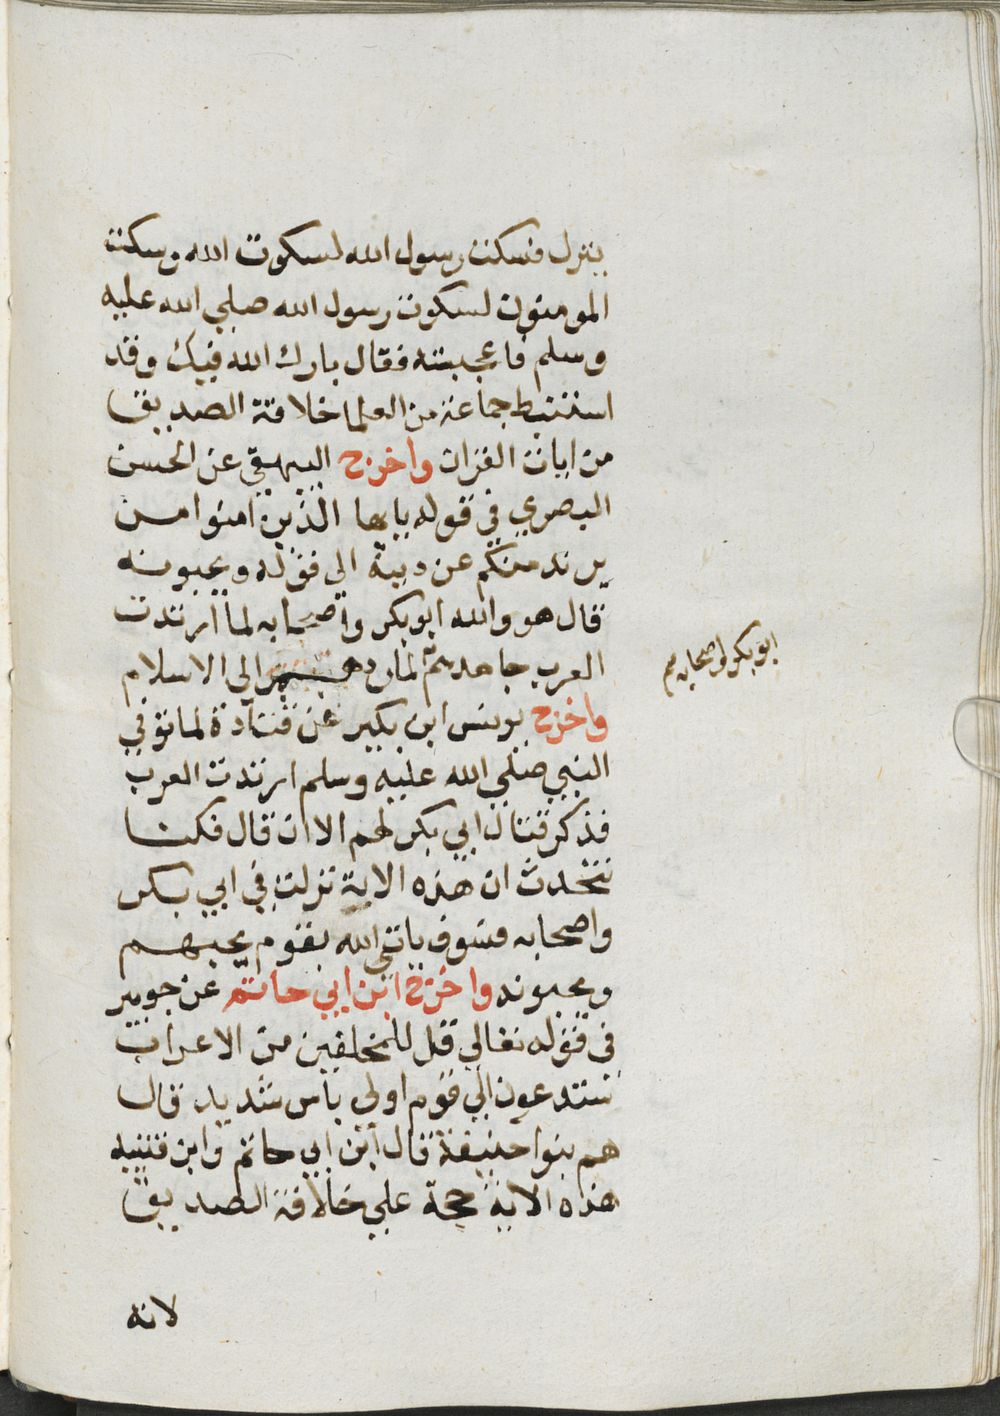 ينزل فسكت رسول الله لسكوت الله وسكت
المومنون لسكوت رسول الله صلي الله عليه
وسلم فاعجبته فقال بارك الله فيك وقد
استنبط جماعة من العلما خلافة الصديق
من ايات القران واخرج البيهقي عن الحسن
البصري في قوله يايها الذين امنوا من
يرتد منكم عن دينه الي قوله ويحبونه
قال هو والله ابوبكر واصحابه لما ارتدت
العرب جاهدهم الي الاسلام
ابوبكر واصحابه صح
واخرج يونس ابن بكير عن قتادة لما توفي
النبي صلي الله عليه وسلم ارتدت العرب
فذكر قتال ابي بكر لهم الا ان قال فكنا
نتحدث ان هذه الاية نزلت في ابي بكر
واصحابه فسوف ياتي الله بقوم يحبهم
ويحبونه واخرج ابن ابي حاتم عن جويبر
في قوله تعالي قل للمخلفين من الاعراب
ستدعون الي قوم اولي باس شديد قال
هم بنوا حنيفة قال ابن ابي حاتم وابن قتيبه
هذه الاية حجة علي خلافة الصديق
لانه